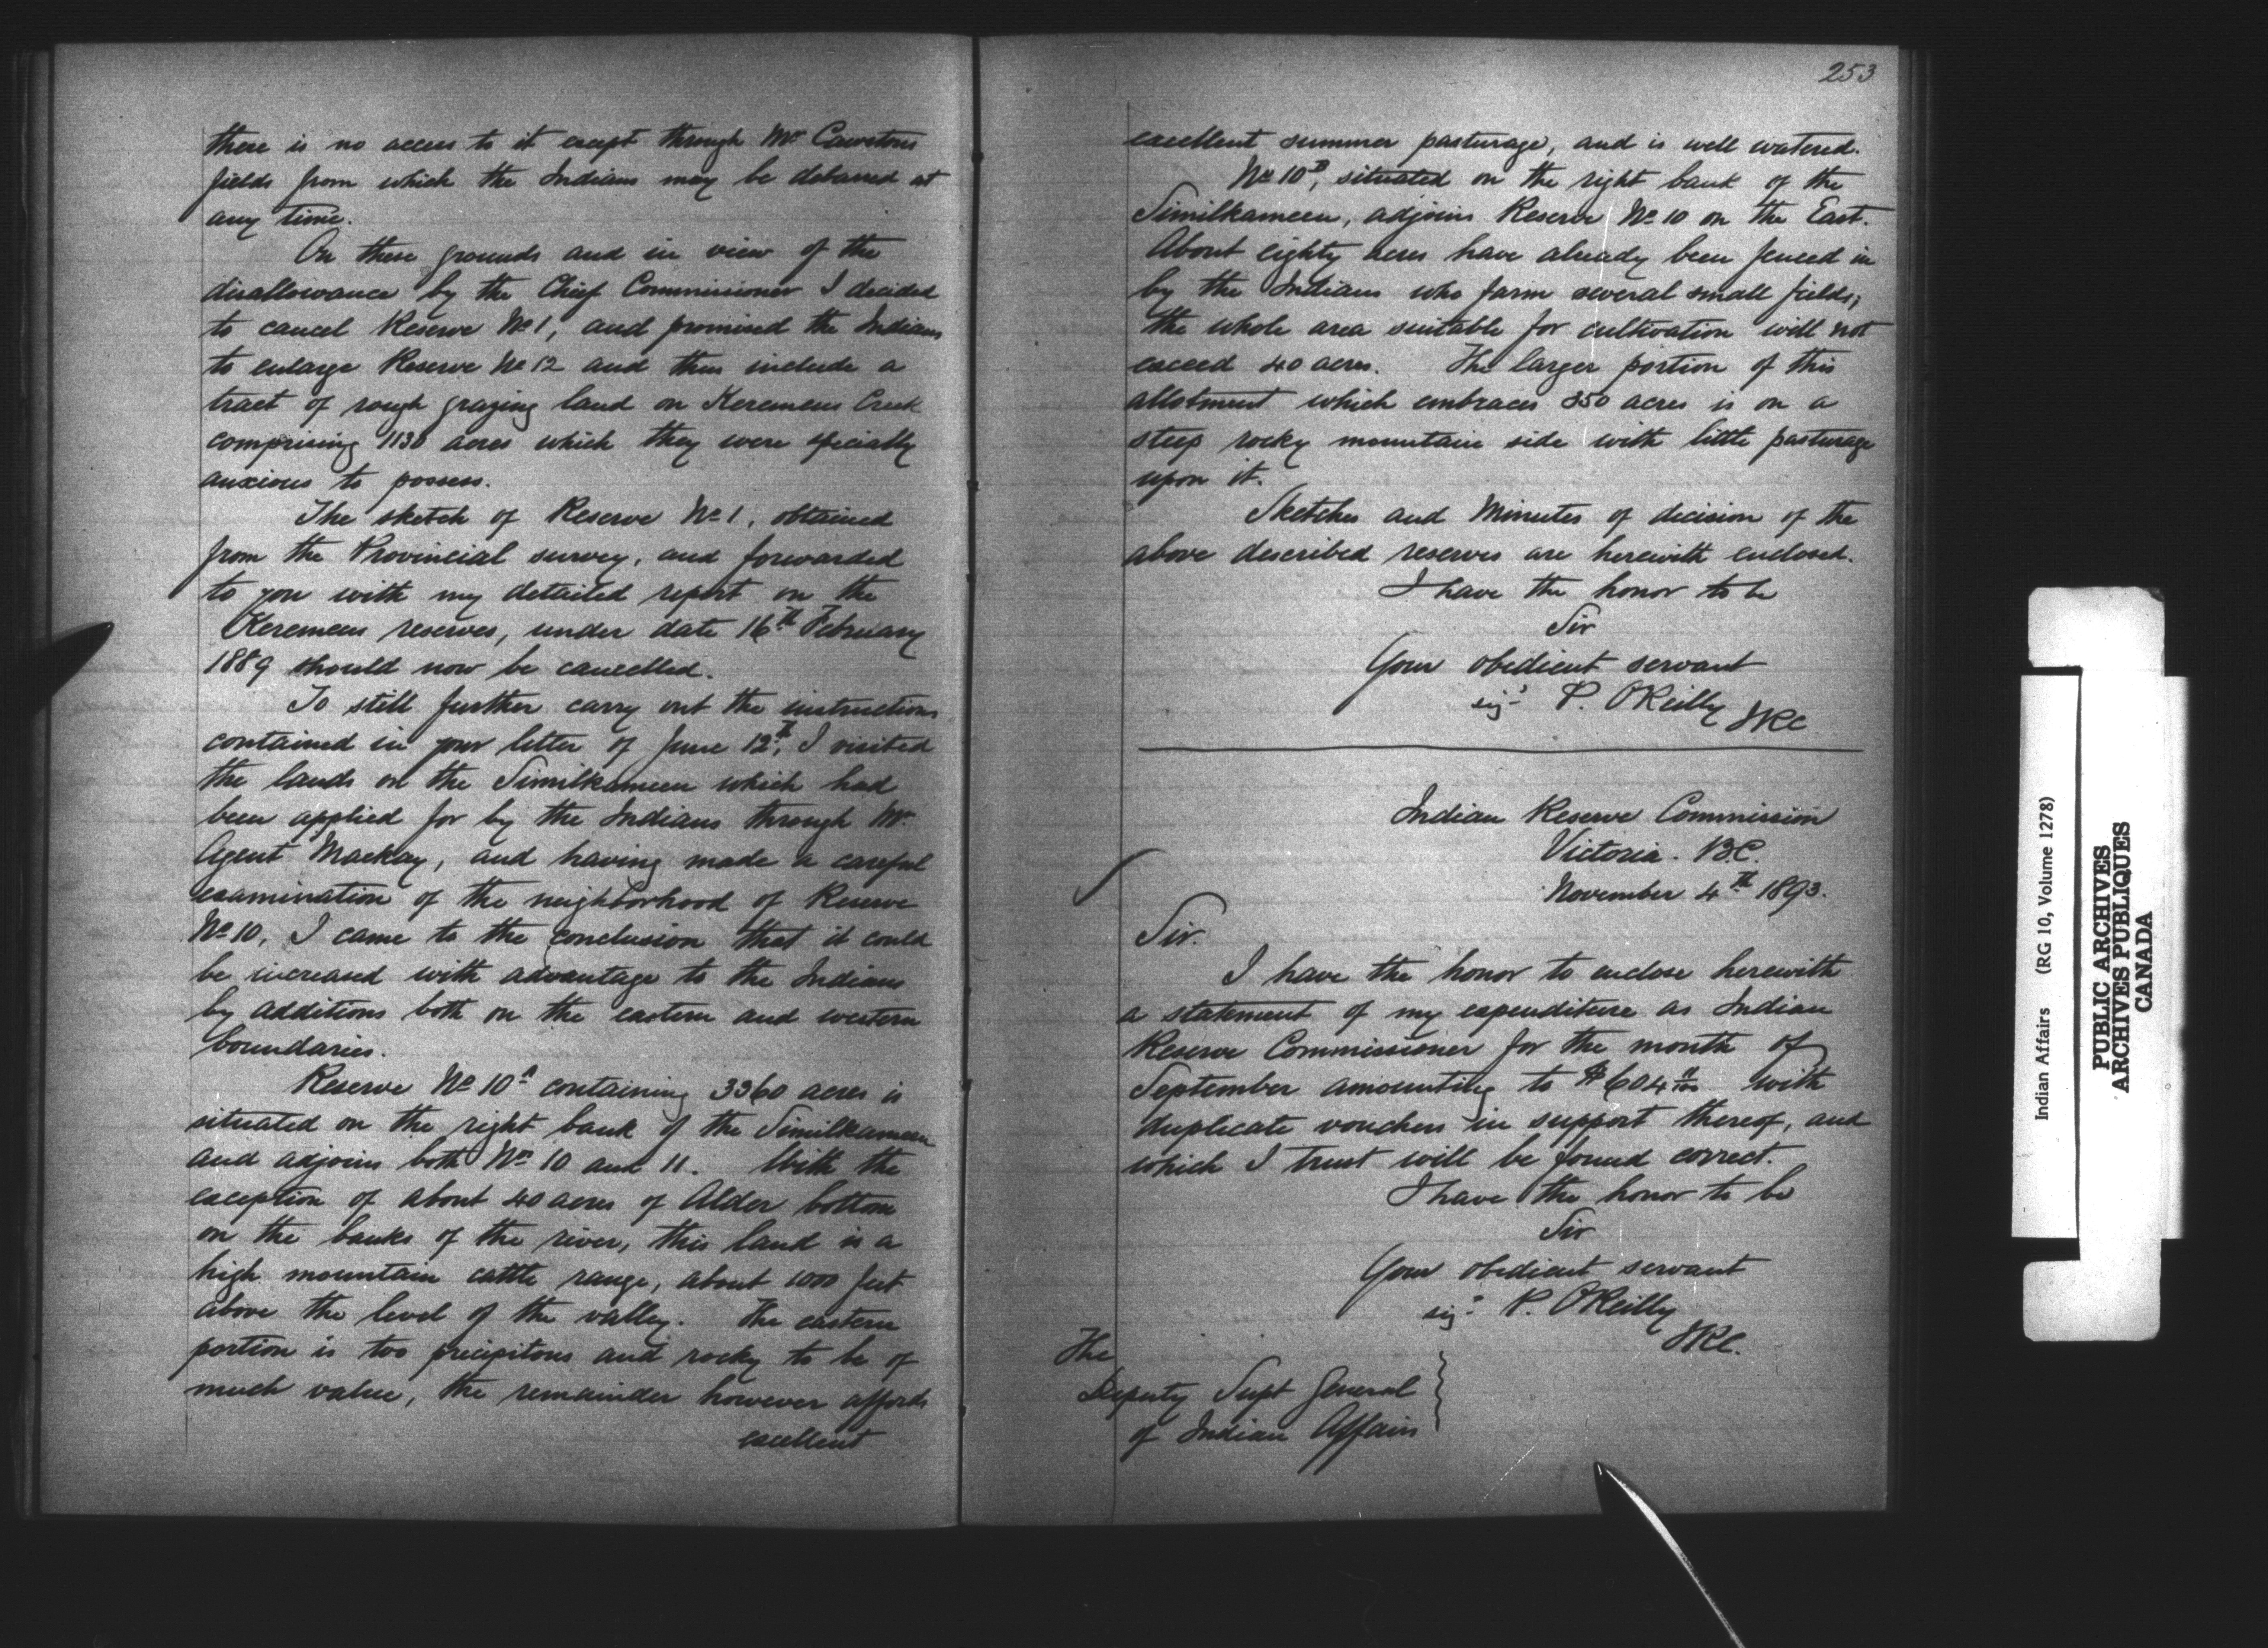 there is no access to it except through Mr Cawstons
fields from which the Indians may be debarred at
any time.
On these grounds and in view of the
disallowance by the Chief Commissioner I decided
to cancel Reserve No 1, and promised the Indians
to enlarge Reserve No 12 and thus include a
tract of rough grazing land on Keremeus Creek
comprising acres which they were specially
anxious to possess.
The sketch of Reserve No 1, obtained
from the Provincial survey, and forwarded
to you with my detailed report on the
Keremeus reserves, under date 16th February
1889 should now be cancelled.
To still further carry out the instructions
contained in your letter of June 12th, I visited
the lands on the Similkameen which had
been applied for by the Indians through Mr.
Agent Mackay, and having made a careful
examination of the neighborhood of Reserve
No 10, I came to the conclusion that it could
be increased with advantage to the Indians
by additions both on the eastern and western
boundaries.
Reserve No 10A containing 3360 acres is
situated on the right bank of the Similkameen
and adjoins both Nos 10 and 11. With the
exception of about 40 acres of Alder bottom
on the banks of the river, this land is a
high mountain cattle range, about 1000 feet
above the level of the valley. The eastern
portion is too precipitous and rocky to be of
much value, the remainder however affords
excellent
253
excellent summer pasturage, and is well watered.
No 10B, situated on the right bank of the
Similkameen, adjoins Reserve No 10 on the East.
About eighty acres have already been fenced in
by the Indians who farm several small fields;
the whole area suitable for cultivation will not
exceed 40 acres. The larger portion of this
allotment which embraces acres is on a
steep rocky mountain side with little pasturage
upon it.
Sketches and Minutes of decision of the
above described reserves are herewith enclosed.
I have the honor to be
Sir
Your obedient servant
sigd P. O'Reilly
IRC
Indian Reserve Commission
Victoria. B.C.
November 4th 1893.
Sir.
I have the honor to enclose herewith
a statement of my expenditure as Indian
Reserve Commissioner for the month of
September amounting to $604 with
duplicate vouchers in support thereof, and
which I trust will be found correct.
I have the honor to be
Sir
Your obedient servant
sigd P. O'Reilly
IRC.
The
Deputy Supt General
of Indian Affairs
Indian Affairs (RG 10, Volume 1278)
PUBLIC ARCHIVES
ARCHIVES PUBLIQUES
CANADA